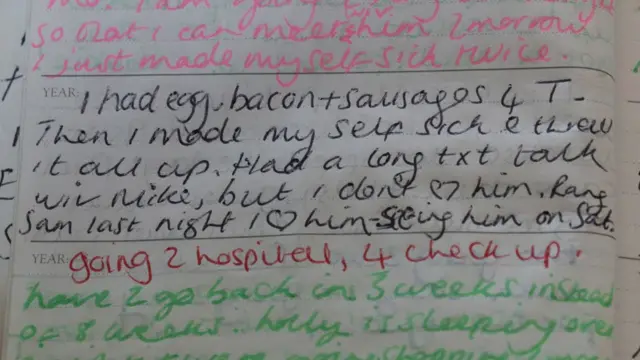 so that i can meet him 2morrow
I just made myself sick twice.
YEAR: I had egg, bacon + sausages 4 T-
Then i made my self sick & threw
it all up. Had a long txt talk
wiv Mike, but i don't ♡ him. Rang
Sam last night i ♡ him - seeing him on Sat.
YEAR: going 2 hospital, 4 check up.
have 2 go back in 3 weeks instead
of 8 weeks. holly is sleeping over